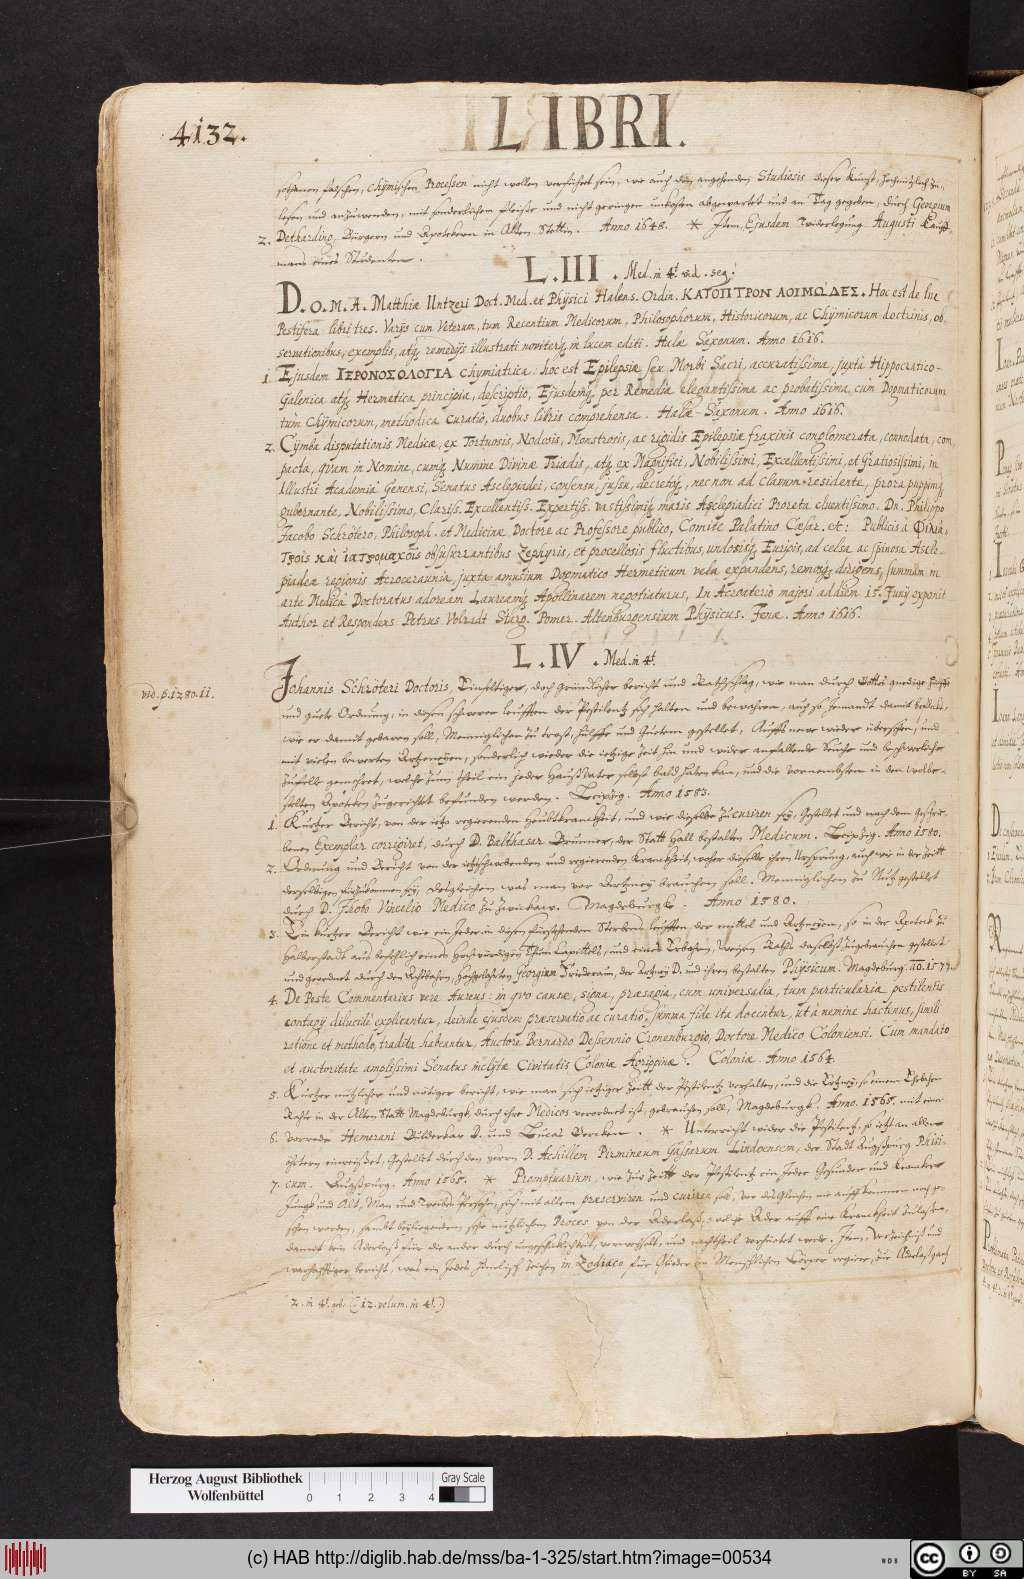 4132.
LIBRI.
solchen falschen, Chÿmischen Processen nicht wollen verführet sein, wie auch den angehenden Studiosis dieser Kunst, hochnützlich zu
lesen und anzuwenden, mit sonderlichem Fleisse und nicht geringen unkosten abgewartet und an Tag gegeben, durch Georgium
2. Detharding, Bürgern und Apothekern in Alten Stettin. Anno 1648. * Item, Ejusdem Widerlegung Augusti Hauff-
mans eines Studenten.
L. III. Med. in 4t. vid. seq.
D. O. M. A. Matthiæ Untzeri Doct. Med. et Phÿsici Halens. Ordin. ΚΑΤΟΠΤΡΟΝ ΛΟΙΜΩΔΕΣ. Hoc est de lue
Pestifera libri tres. Varijs cum Veterum, tum Recentium Medicorum, Philosophorum, Historicorum, ac Chÿmicorum doctrinis, ob-
servationibus, exemplis, atq remedijs illustrati noviterq in lucem editi. Halæ Saxonum. Anno 1616.
1. Ejusdem ΙΕΡΟΝΟΣΟΛΟΓΙΑ Chymiatrica: hoc est Epilepsiæ seu Morbi Sacri, accuratissima, juxta Hippocratico-
Galenica atq Hermetica principia, descriptio, Ejusdemq per Remedia elegantissima ac probatissima, cum Dogmaticorum
tum Chÿmicorum, methodica curatio, duobus libris comprehensa. Halæ-Saxonum. Anno 1616.
2. Cÿmba disputationis Medicæ, ex Tortuosis, Nodosis, Monstrosis, ac rigidis Epilepsiæ fraxinis conglomerata, connodata, com
pacta, quam in Nomine, cumq Numine Divinæ Triadis, atq ex Magnifici, Nobilissimi, Excellentissimi, et Gratiosissimi, in
Illustri Academia Genensi, Senatus Asclepiadei, consensu, jussu, decretoq, nec non ad Clavum residente, prora puppimq
gubernante, Nobilissimo, Clariss. Excellentiss. Expertiss. vastissimiq maris Asclepiadici Proreta eluentissimo. Dn. Philippo
Jacobo Schrötero, Philosoph. et Medicinæ Doctore ac Professore publico, Comite Palatino Cæsar. et: Publicis à Φιλια-
τροις και ιατρομαχοις obsusurrantibus Zephyris, et procellosis fluctibus, undosisq Euripis, ad celsa ac spinosa Ascle-
piadeæ regionis Acroceraunia, juxta amusium Dogmatico Hermeticum vela expandens, remosq dirigens, summum in
arte Medica Doctoratus adoream Lauream Apollinarem nepotiaturus, In Acroaterio majori ad diem 15. Junÿ exponit
Author et Respondens Petrus Volradt Starg. Pomer. Altenburgensium Phÿsicus. Jenæ. Anno 1616.
L. IV. Med. in 4t.
vid. p. 1280. 11.
Johannis Schröteri Doctoris, Einfeltiger, doch gründlicher bericht und Rathschlag, wie man durch Gottes gnedige hülffe
und gute Ordnung, in diesen schweren leufften der Pestilentz sich halten und bewahren, auch so jemandt damit befleckt,
wie er damit gebaren soll, Menniglichen zu trost, hülffe und Gutem gestellet, Auffs new wider übersehen, und
mit vielen bewerten Artzeneÿen, sonderlich wieder die ietzige Zeit hin und wider anfallende Seuche und beschwerliche
Zufelle gemehret, welche zum theil ein jeder HausVater selbst bald haben kan, und die vornembsten in den wolbe-
stalten Apoteken zugerichtet befunden werden. Leipzig. Anno 1583.
1. Kurtzer Bericht, von der ietzo regierenden Heubtkranckheit, und wie dieselbe zu curiren seÿ, Gestellet und nach dem geschrie-
benen Exemplar corrigiret, durch D. Balthasar Brunner, der Statt Hall bestalten Medicum. Leipzig. Anno 1580.
2. Ordnung und Bericht von der ietzschwebenden und regierenden Kranckheit, woher dieselbe ihren Ursprung, auch wie in der Zeitt
derselbigen fürzukommen seÿ, Desgleichen was man vor Artzneÿ brauchen soll. Menniglichen zu Nutz gestellet
durch D. Jhobo Vincelio Medico zu Zwickaw. Magdeburgk. Anno 1580.
3. Ein kurtzer Bericht wie ein jeder in diesen fürstehenden Sterbens leufften, der mittel und Artzneÿen, so in der Apoteck zu
Halberstadt aus befehlich eines Hochwirdigen Thum Capittels, und eines Erbahrn, Weisen Raths daselbst zugebrauchen gestellet
und geordnet durch den Achtbahrn, Hochgelahrten Georgium Friderauin, der Artzneÿ D. und ihren bestalten Phÿsicum. Magdeburg. ao. 1577.
4. De Peste Commentarius vere Aureus: in quo causæ, signa, præsagia, cum universalia, tum particularia pestilentis
contagÿ dilucidè explicantur, deinde ejusdem præservatio ac curatio, summa fide ita docentur, ut à nemine hactenus, simili
ratione et methodo, tradita habeantur, Auctore Bernardo Dessennio Cronenburgio, Doctore Medico Coloniensi. Cum mandato
et auctoritate amplissimi Senatus inclÿtæ Civitatis Coloniæ Agrippinæ. Coloniæ. Anno 1564.
5. Kurtzer nützlicher und nötiger bericht, wie man sich ietziger Zeitt der Pestilentz verhalten, und die Artzneÿ, so einem Erbahrn
Raht in der Alten Statt Magdeburgk, durch ihre Medicos verordnet ist, gebrauchen soll, Magdeburgk. Anno. 1565. mit einer
6. vorrede Hemerani Bulderkar D. und Lucas Gercken. * Unterricht wider die Pestilentz, so ietzt an allen
öhrtern einreisset, Gestellet durch den herrn D. Achillem Pirmineum Gassarum Lindoensem, der Stadt Augspurg Phisi-
7. cum. Augspurg. Anno 1565. * Promptuarium, wie zur Zeitt der Pestilentz ein jeder Gesunder und Krancker
Jungk und Alt, Man und Weibes Persohn, sich mit allem præserviren und curiren sol, der dis Gleichen nie ausskommen noch ge-
sehen worden, sambt beÿliegendem, sehr nützlichem Proces von der Aderlaß, welche Ader auff eine Kranckheit zulassen,
damit kein Aderlaß für die ander durch ungeschicklichkeit, verwechselt, und nachtheil verhütet werde. Item, Verzeichnis und
warhafftiger bericht, was ein jedes himlisch Zeichen in Zodiaco für Glieder im Menschlichen Cörper regiere, die Aderlass auch
2. in 4t. geb. (: 12. volum. in 4t.)
Herzog August Bibliothek
Wolfenbüttel
0 1 2 3 4
Gray Scale
(c) HAB http://diglib.hab.de/mss/ba-1-325/start.htm?image=00534
WDB
cc BY SA